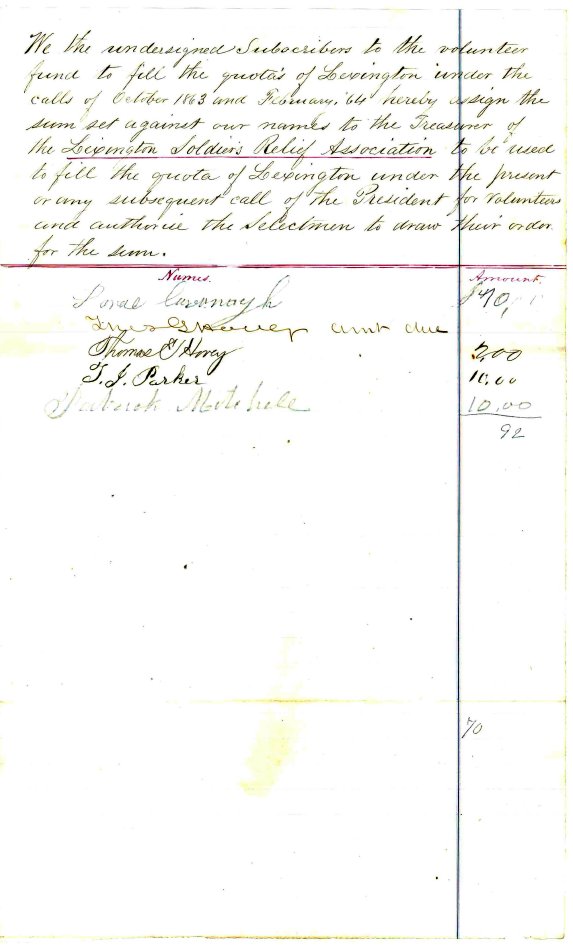 We the undersigned Subscribers to the volunteer
fund to fill the quota's of Lexington under the
calls of October 1863 and February, '64 hereby assign the
sum set against our names to the Treasurer of
the Lexington Soldier's Relief Association to be used
to fill the quota of Lexington under the present
or any subsequent call of the President for Volunteers
and authorise the Selectmen to draw their order
for the sum.
Names. Amount.
Cavanagh $70,
amt due
Thomas Hovey 2,00
T. J. Parker 10,00
10,00
92
70